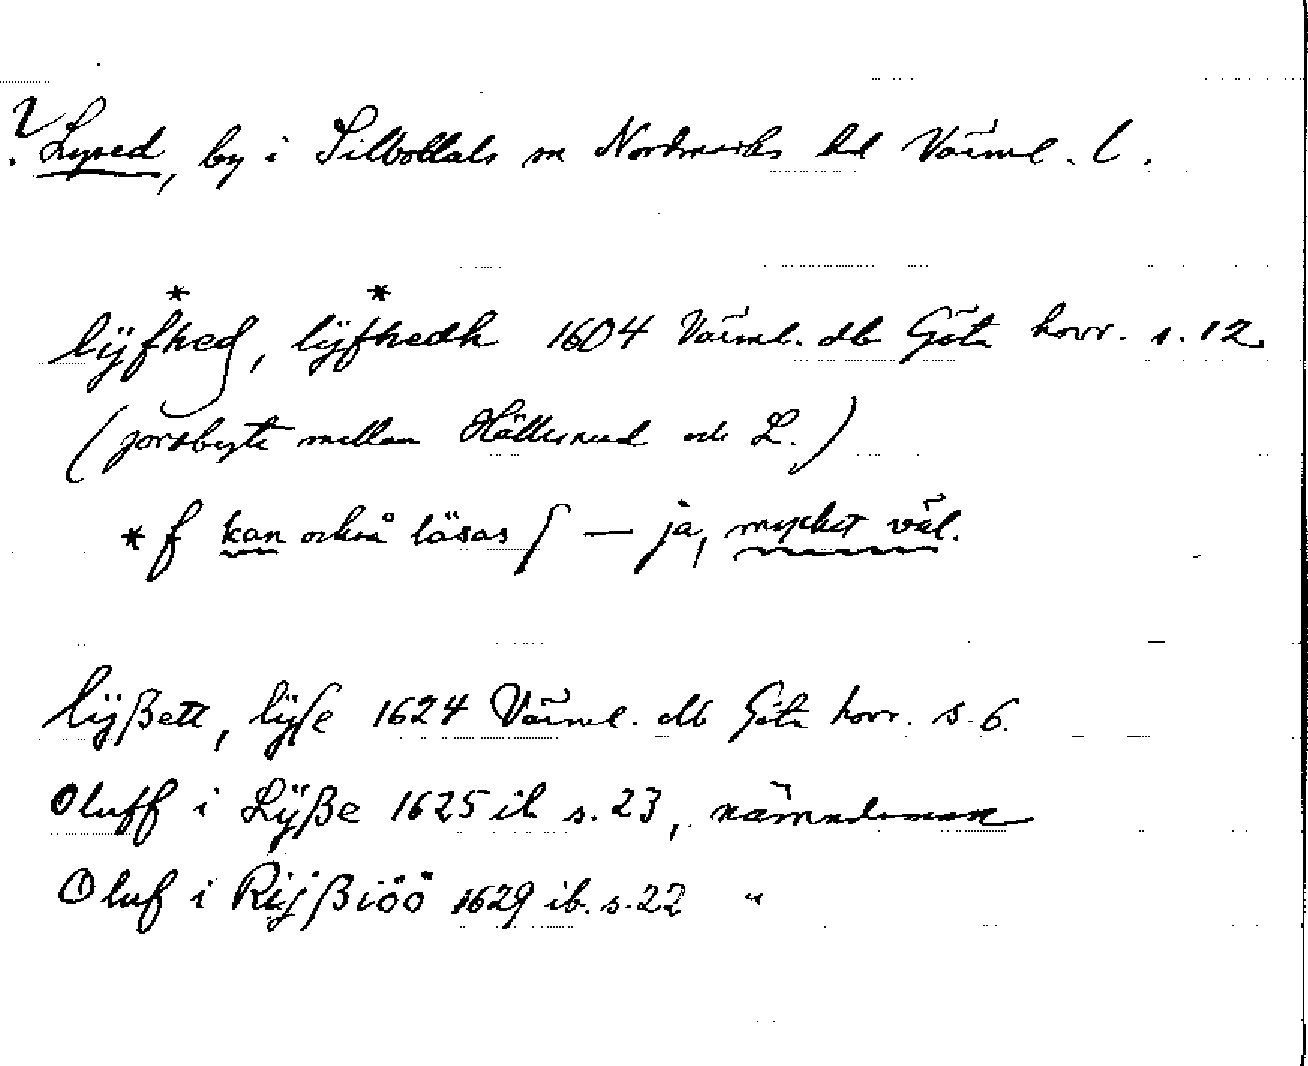 ? Lysed, by i Silbodals sn Nordmarks hd Värml. l.
* *
lÿfhed, lÿfhedh 1604 Värml. db Göta hovr. s. 12.
(jordbyte mellan Hällesrud och L.)
* f kan också läsas ſ — ja, mycket väl.
lÿßett, lÿſe 1624 Värml. db Göta hovr. s. 6.
Oluff i Lÿße 1625 ib s. 23, nämndeman
Oluf i Rÿßiöö 1629 ib. s. 22 "